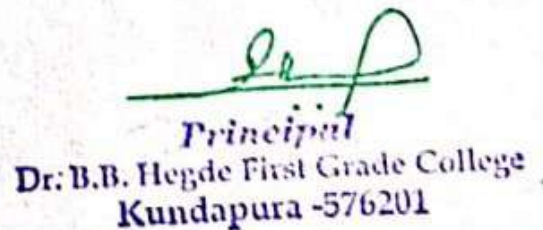 Principal
Dr: B.B. Hegde First Grade College
Kundapura -576201